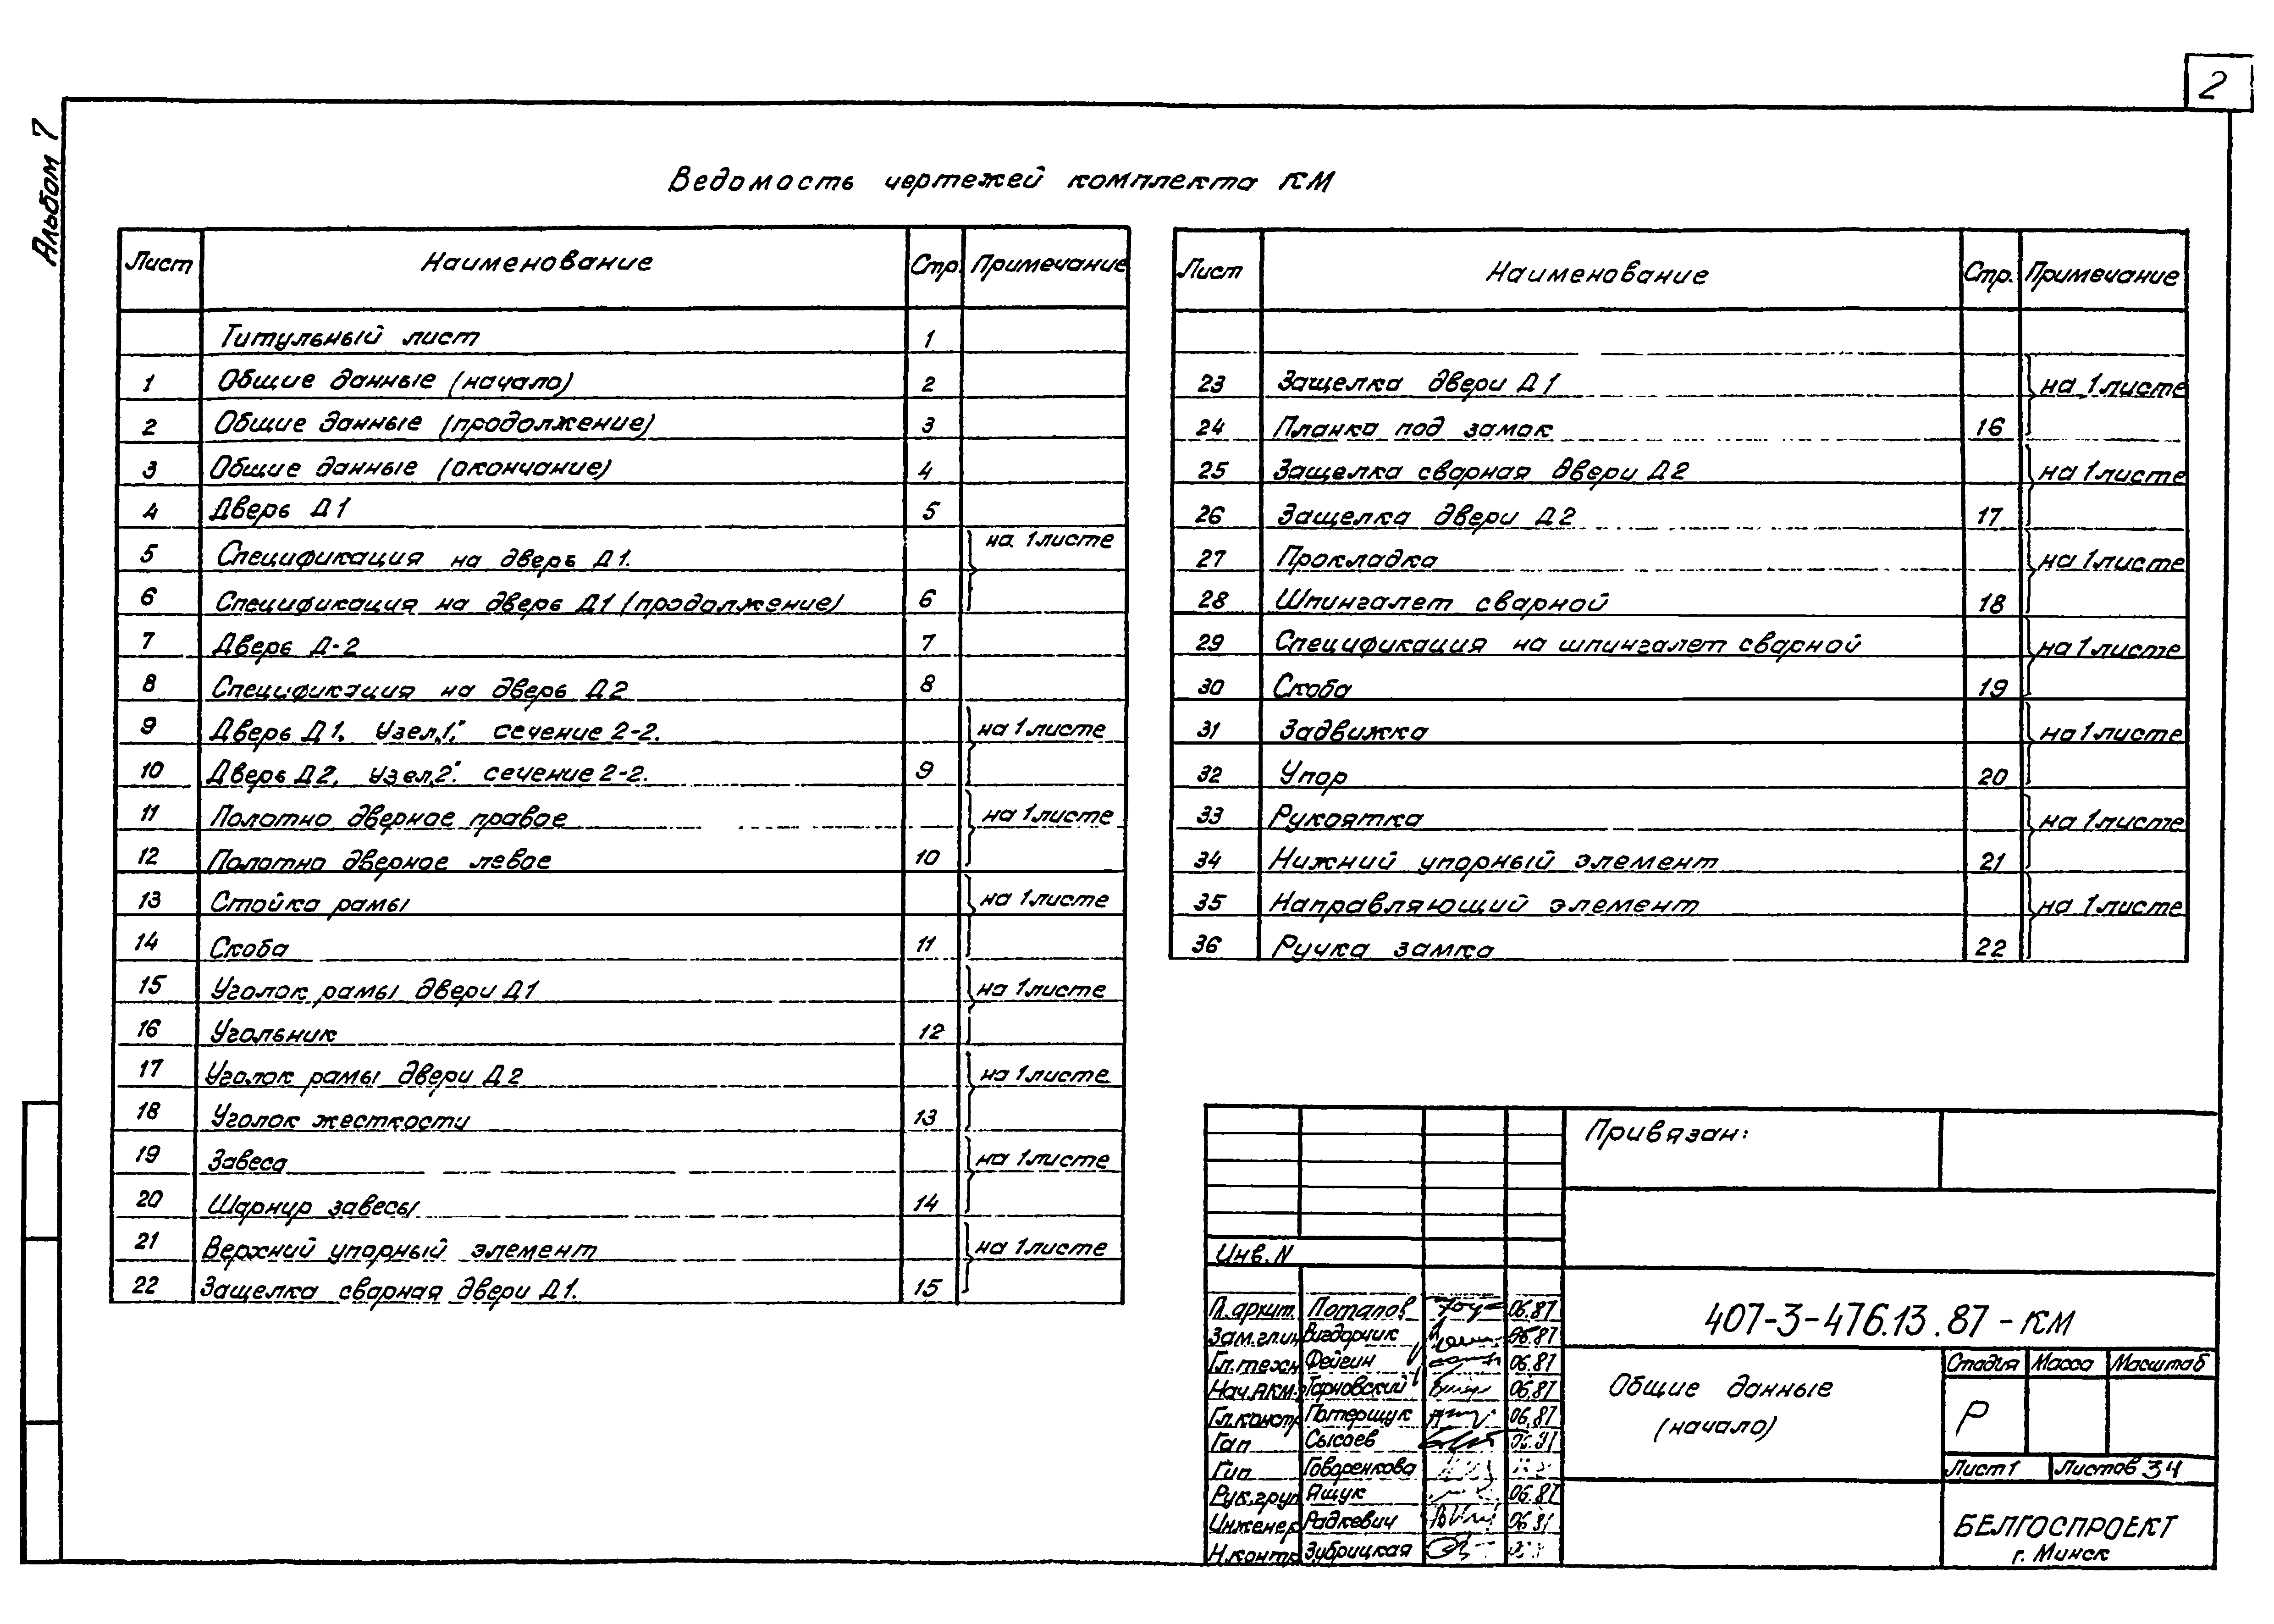 2
Альбом 7
Ведомость чертежей комплекта КМ
Лист Наименование Стр. Примечание
Титульный лист 1
1 Общие данные (начало) 2
2 Общие данные (продолжение) 3
3 Общие данные (окончание) 4
4 Дверь Д1 5
5 Спецификация на дверь Д1. на 1 листе
6 Спецификация на дверь Д1 (продолжение) 6
7 Дверь Д-2 7
8 Спецификация на дверь Д2 8
9 Дверь Д1. Узел„1“. сечение 2-2. на 1 листе
10 Дверь Д2. Узел„2“. сечение 2-2. 9
11 Полотно дверное правое на 1 листе
12 Полотно дверное левое 10
13 Стойка рамы на 1 листе
14 Скоба 11
15 Уголок рамы двери Д1 на 1 листе
16 Угольник 12
17 Уголок рамы двери Д2 на 1 листе
18 Уголок жесткости 13
19 Завеса на 1 листе
20 Шарнир завесы 14
21 Верхний упорный элемент на 1 листе
22 Защелка сварная двери Д1. 15
Лист Наименование Стр. Примечание
23 Защелка двери Д1 на 1 листе
24 Планка под замок 16
25 Защелка сварная двери Д2 на 1 листе
26 Защелка двери Д2 17
27 Прокладка на 1 листе
28 Шпингалет сварной 18
29 Спецификация на шпингалет сварной на 1 листе
30 Скоба 19
31 Задвижка на 1 листе
32 Упор 20
33 Рукоятка на 1 листе
34 Нижний упорный элемент 21
35 Направляющий элемент на 1 листе
36 Ручка замка 22
Привязан:
Инв. N
Гл.архит. Потапов 06.87
Зам.гл.инж Вигдорчик 06.87
Гл.техн Фейгин 06.87
Нач.АКМ-2 Тарновский 06.87
Гл.констр Потерщук 06.87
Гап Сысоев
Гип Говоренкова
Рук.груп Ящук 06.87
Инженер Радкевич
Н.контр Зубрицкая
407-3-476.13.87-КМ
Общие данные
(начало)
Стадия Масса Масштаб
Р
Лист 1 Листов 34
БЕЛГОСПРОЕКТ
г. Минск